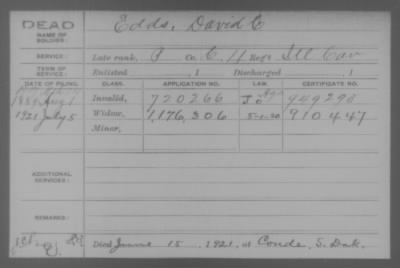 DEAD
NAME OF SOLDIER:
Edds, David C
SERVICE:
Late rank, P Co. C, 11 Reg't Ill Cav
TERM OF SERVICE:
Enlisted , 1 Discharged , 1
DATE OF FILING. CLASS. APPLICATION NO. LAW. CERTIFICATE NO.
1889 Aug 1 Invalid, 720266
1921 July 5 Widow, 1,176,206 5-1-20 910447
Minor,
ADDITIONAL SERVICES:
REMARKS:
Died June 15, 1921, at Conde, S. Dak.